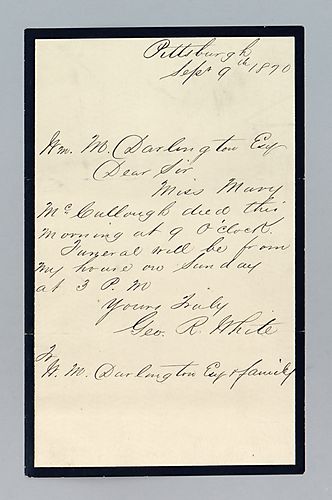 Pittsburgh
Sept 9th 1870
Wm. M. Darlington Esq
Dear Sir
Miss Mary
McCullough died this
morning at 9 O'clock.
Funeral will be from
my house on Sunday
at 3 P. M
Yours Truly
Geo. R. White
To
W. M. Darlington Esq & family